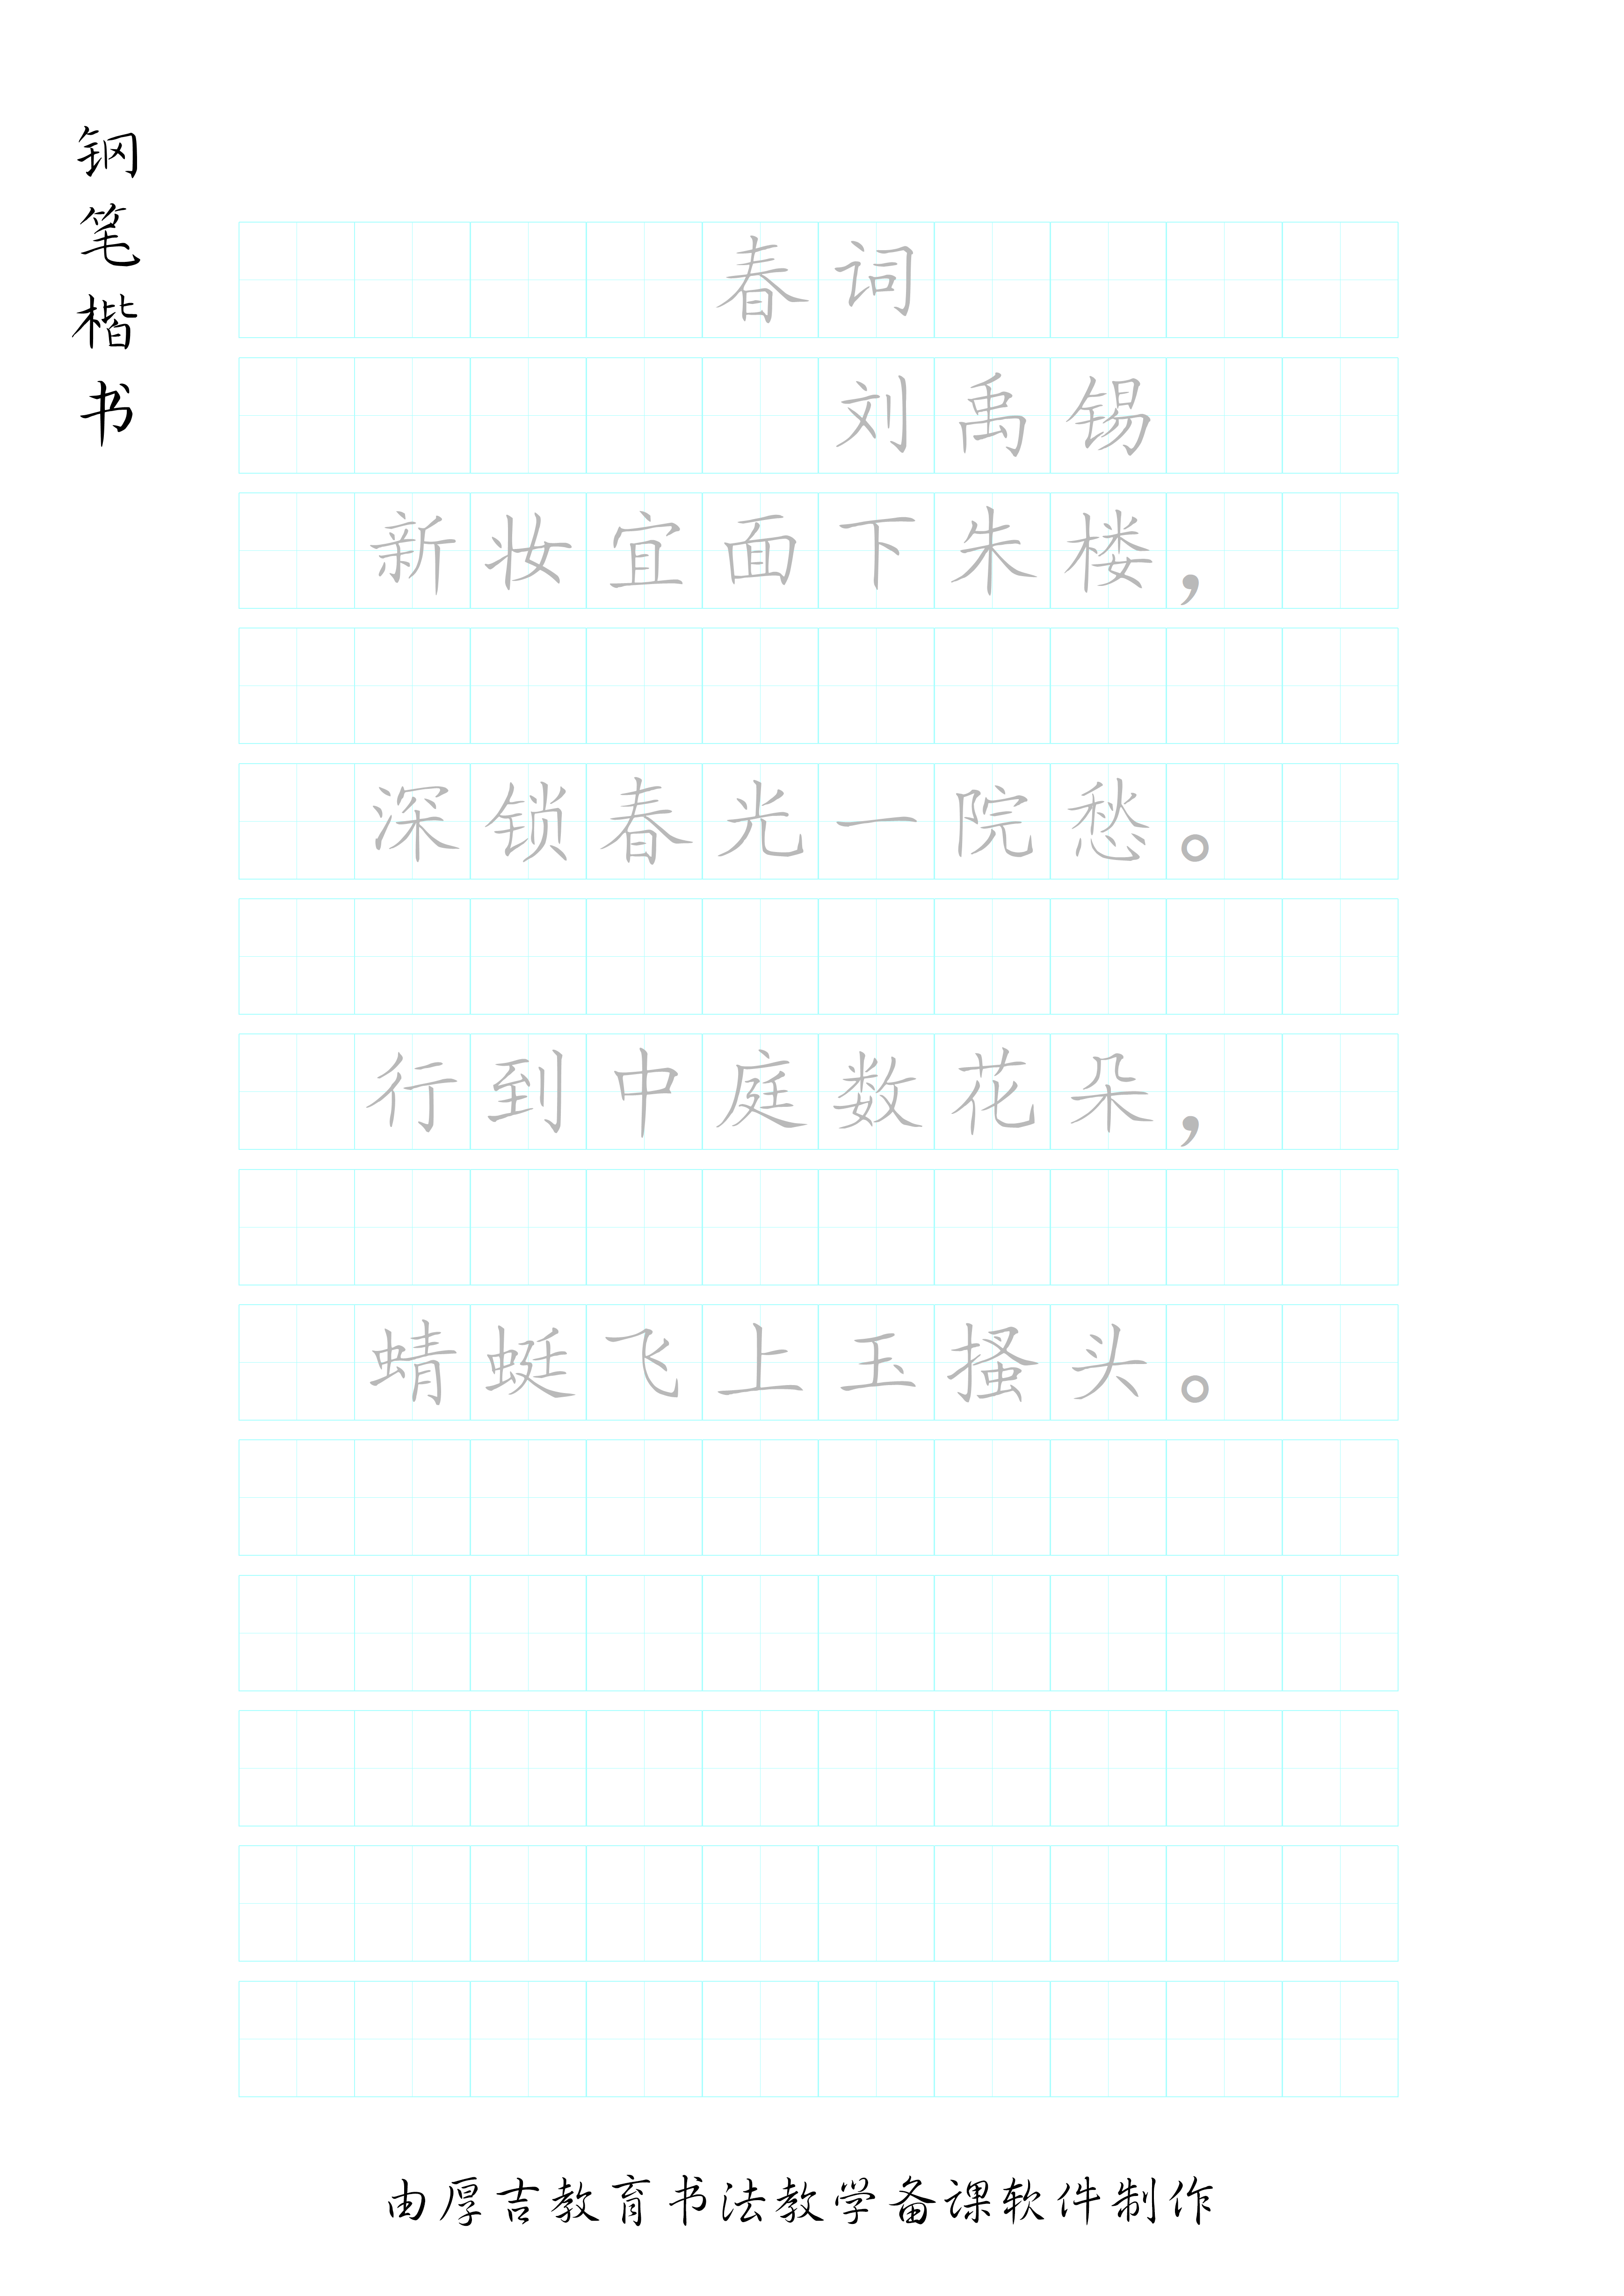 钢笔楷书
春词
刘禹锡
新妆宜面下朱楼，
深锁春光一院愁。
行到中庭数花朵，
蜻蜓飞上玉搔头。
由厚吉教育书法教学备课软件制作